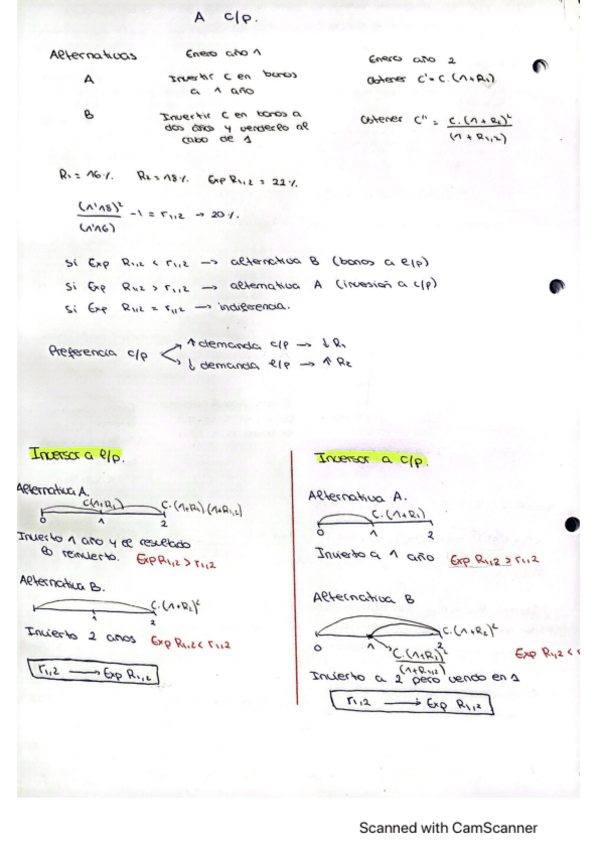 A c/p.
Alternativas Enero año 1 Enero año 2
A Invertir C en bonos a 1 año Obtener C' = C.(1+R1)
B Invertir C en bonos a dos años y venderlo al cabo de 1 Obtener C'' = C.(1+R2)² / (1+R1,2)
R1 = 16%. R2 = 18%. Exp R1,2 = 22%.
(1'18)² / (1'16) - 1 = r1,2 → 20%.
Si Exp R1,2 < r1,2 → alternativa B (bonos a l/p)
Si Exp R1,2 > r1,2 → alternativa A (inversión a c/p)
Si Exp R1,2 = r1,2 → indiferencia.
Preferencia c/p
↑ demanda c/p → ↓ R1
↓ demanda l/p → ↑ R2
Inversor a l/p.
Alternativa A.
C(1+R1) C.(1+R1)(1+R1,2)
0 1 2
Invierto 1 año y el resultado
lo reinvierto. Exp R1,2 > r1,2
Alternativa B.
C.(1+R2)²
1 2
Invierto 2 años Exp R1,2 < r1,2
r1,2 → Exp R1,2
Inversor a c/p.
Alternativa A.
C.(1+R1)
0 1 2
Invierto a 1 año Exp R1,2 > r1,2
Alternativa B
C.(1+R2)²
0 1 2
C.(1+R2)² / (1+R1,2)
Exp R1,2 <
Invierto a 2 pero vendo en 1
r1,2 → Exp R1,2
Scanned with CamScanner